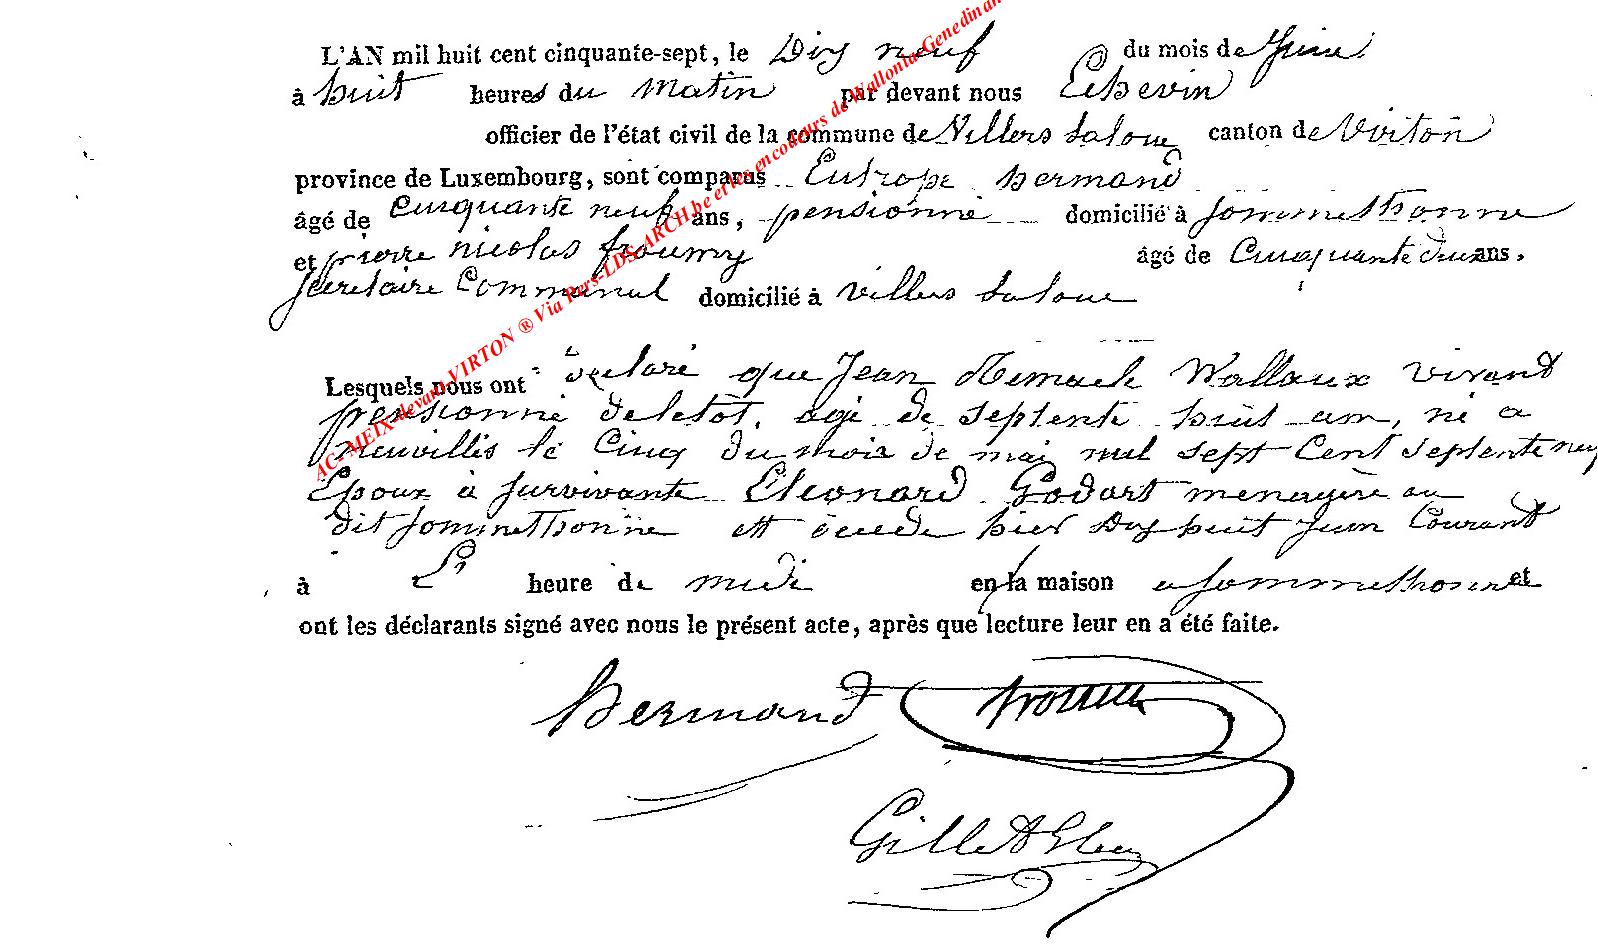 L'AN mil huit cent cinquante-sept, le Dix neuf du mois de Juin
à huit heures du matin par devant nous Echevin
officier de l'état civil de la commune de Villers Laloue canton de Virton
province de Luxembourg, sont comparus Eutrope hermand
âgé de Cinquante neuf ans, pensionné domicilié à Sommethonne
et pierre nicolas froumy âgé de Cinquante deux ans.
Secretaire Communal domicilié à Villers Laloue
Lesquels nous ont declaré que Jean Wallaux vivant
pensionné deletat, agé de septente huit ans, né a
neuvillis le Cinq du mois de mai mil sept Cent septente neuf
Epoux a survivante Eleonard Godart menagere au
dit Sommethonne et décédé hier dix huit Juin Courant
à heure de midi en la maison a Sommethonne et
ont les déclarants signé avec nous le présent acte, après que lecture leur en a été faite.
Hermand
AC- MEIX-devant-VIRTON ® Via Pers-LDS-ARCH.be et les encodeurs de Wallonia Genedinan